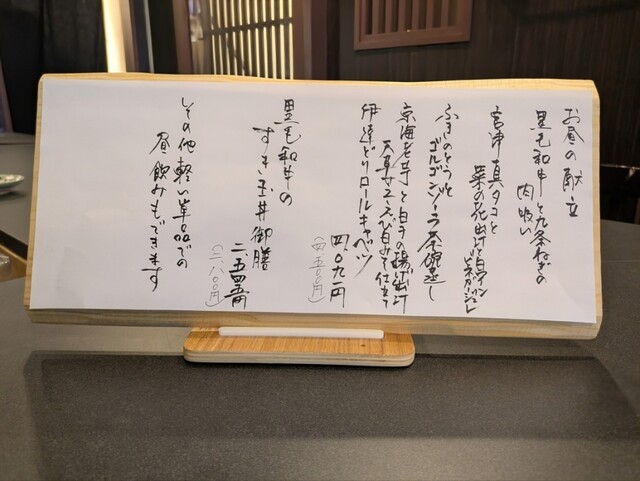 お昼の献立
黒毛和牛と九条ねぎの
肉吸い
宮津 真タコと
菜の花出汁と白ワイン
ビネガージュレ
ふきのとうと
ゴルゴンゾーラ茶碗蒸し
京海老芋と白子の揚げ出汁
天草サエズで白みそ仕立て
伊達どりロールキャベツ
四、〇九一円
(四、五〇〇円)
黒毛和牛の
すき玉丼御膳
二、五四五円
(二、八〇〇円)
その他軽い単品での
昼飲みもできます